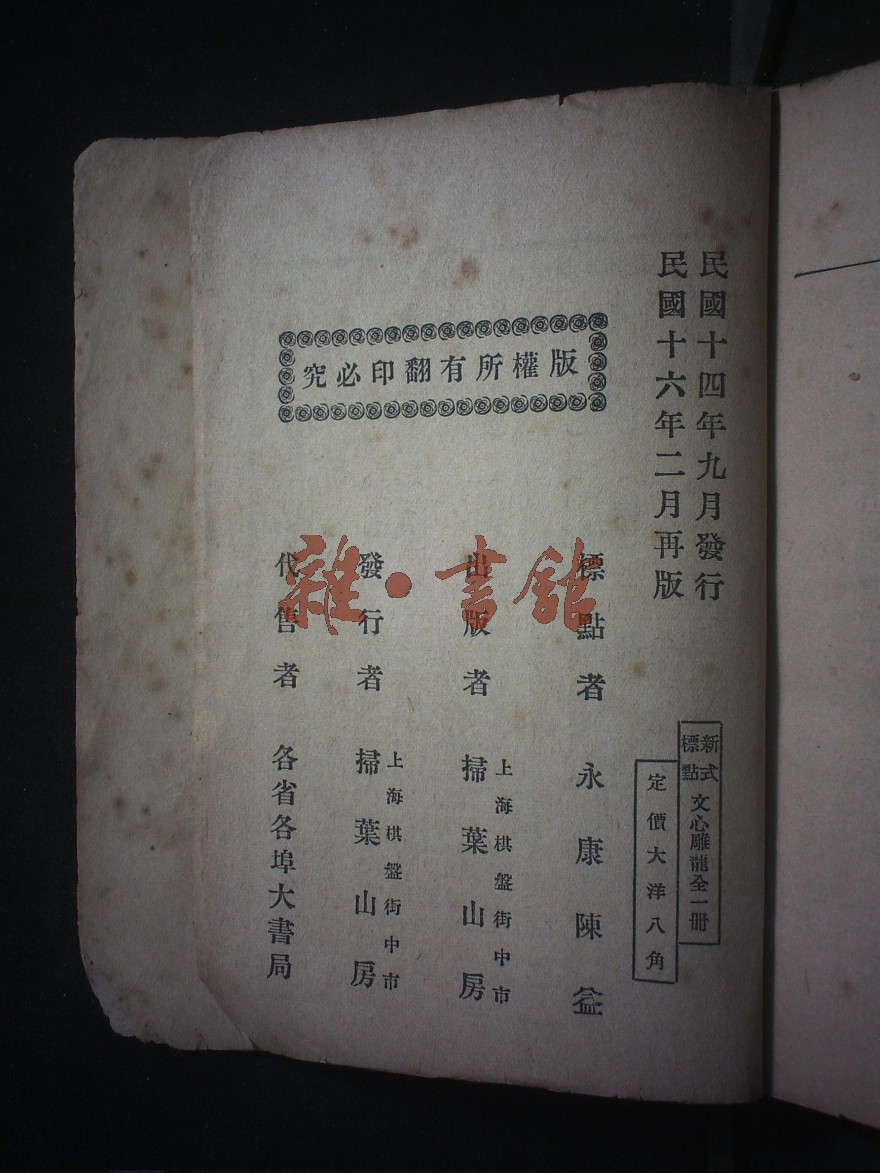 民國十四年九月發行
民國十六年二月再版
新式標點 文心雕龍全一册
定價大洋八角
版權所有翻印必究
標點者 永康陳益
上海棋盤街中市
出版者 掃葉山房
上海棋盤街中市
發行者 掃葉山房
代售者 各省各埠大書局
雜·書館